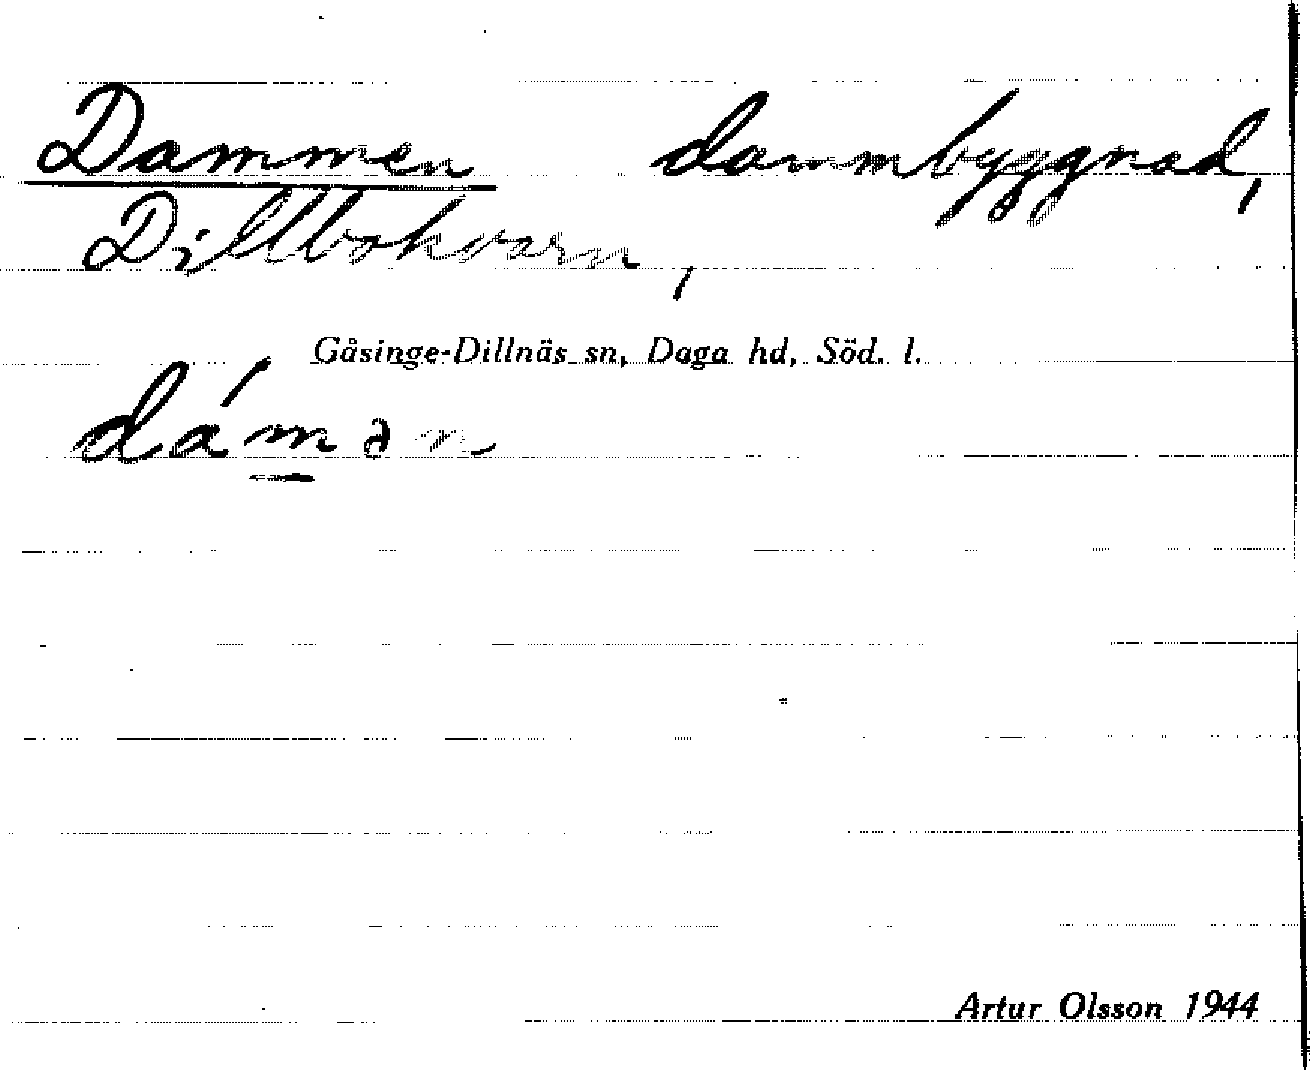 Dammen dammbyggnad,
Dillbokvarn,
Gåsinge-Dillnäs sn, Daga hd, Söd. l.
dámən
Artur Olsson 1944